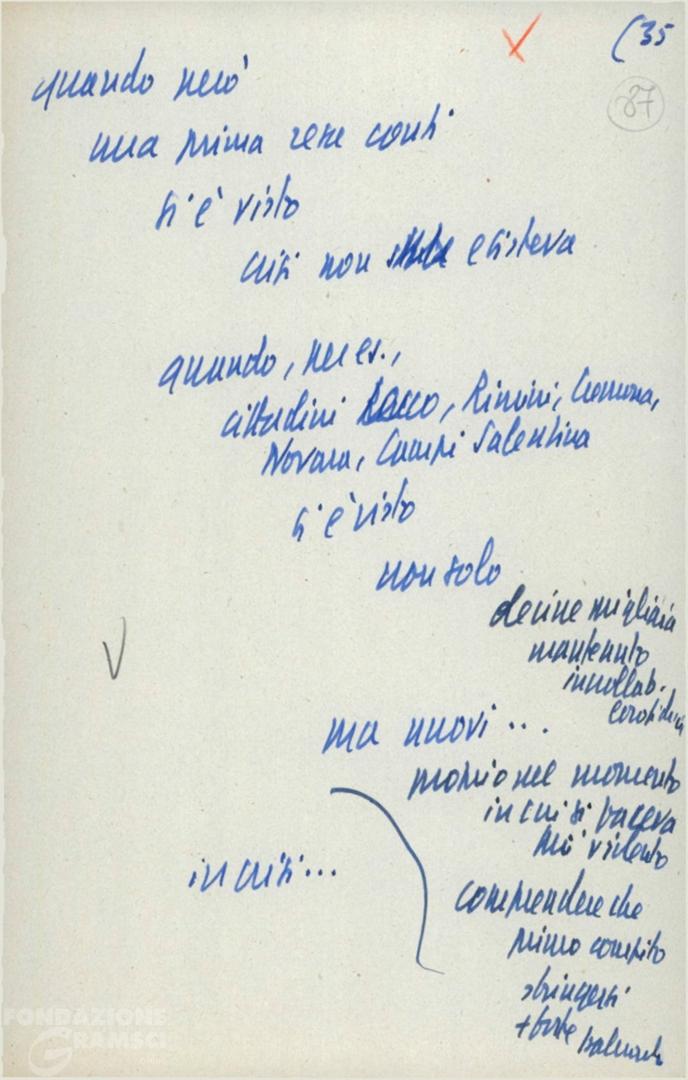 (35
87
quando però
una prima resa conti
si è visto
crisi non esisteva
quando, per es.,
cittadini Lecco, Rimini, Cremona,
Novara, Campi Salentina
si è visto
non solo
decine migliaia
mantenuto
incrollab.
ma nuovi...
proprio nel momento
in cui si faceva
più violento
in crisi...
comprendere che
primo compito
stringersi
+ forte
FONDAZIONE
GRAMSCI